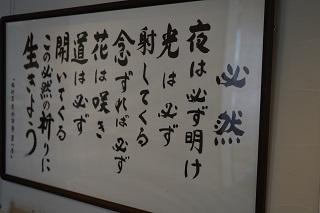 必然
夜は必ず明け
光は必ず
射してくる
念ずれば必ず
花は咲き
道は必ず
開いてくる
この必然の祈りに
生きよう